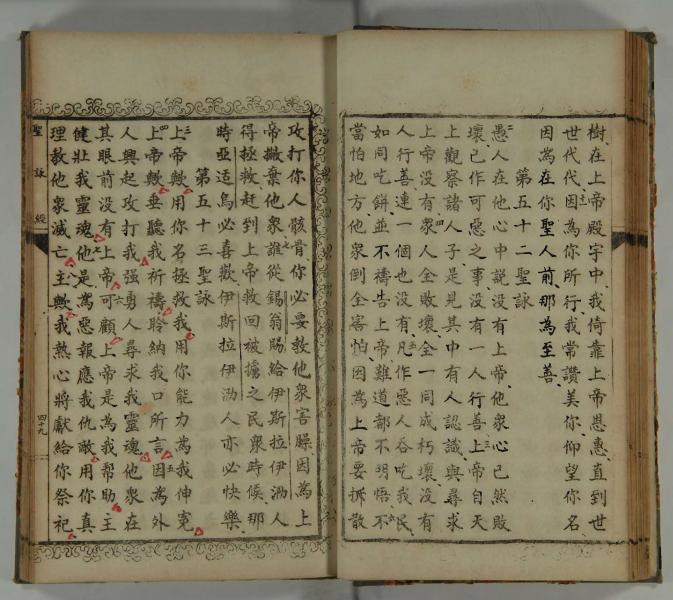 樹在上帝殿宇中我倚靠上帝恩惠直到世
世代代因為你所行我常讚美你仰望你名
因為在你聖人前那為至善
第五十二聖詠
愚人在他心中說沒有上帝他衆心已然敗
壞已作可惡之事沒有一人行善上帝自天
上觀察諸人子是見其中有人認識與尋求
上帝沒有衆人全敗壞全一同成朽壞沒有
人行善連一個也沒有凡作惡人吞吃我民
如同吃餅並不禱告上帝難道都不明悟不
當怕地方他衆倒全害怕因為上帝要拆散
攻打你人骸骨你必要教他衆害臊因為上
帝撇棄他衆誰從錫翁賜給伊斯拉伊泐人
得拯救赶到上帝救回被擄之民衆時候那
時亞适烏必喜歡伊斯拉伊泐人亦必快樂
第五十三聖詠
上帝歟用你名拯救我用你能力為我伸冤
上帝歟垂聽我祈禱聆納我口所言因為外
人興起攻打我强勇人尋求我靈魂他衆在
其眼前没有上帝可顧上帝是為我帮助主
健壯我靈魂他是為惡報應我仇敵用你真
理教他衆滅亡主歟我熱心將獻給你祭祀
聖詠經
四十九